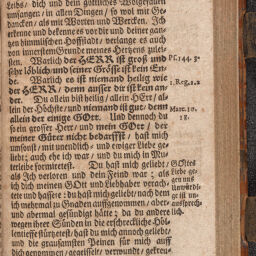 Leibs/ dich und dein göttliches Wolgefallen
umfangen/ in allen Dingen/ so wol mit Ge-
dancken/ als mit Worten und Wercken. Ich
erkenne und bekenne es vor dir und deiner gan-
tzen himmlischen Hoffstadt/ verlange es auch
von innerstem Grunde meines Hertzens zulei-
sten. Warlich der HERR ist groß und Ps. 144. 3.
sehr löblich und seiner Grösse ist kein En-
de. Warlich es ist niemand heilig wie 1. Reg. 2. 2
der HERR/ denn ausser dir ist kein an-
der. Du allein bist heilig/ allein HErr/ al-
lein der Höchste/ und niemand ist gut/ denn Marc. 10.
allein der einige GOtt. Und dennoch du 18.
so ein grosser Herr/ und mein GOtt/ der
meiner Güter nicht bedarffst/ hast mich
umsonst/ mit unendlich- und ewiger Liebe ge-
liebt; auch ehe ich war/ und du mich in Mut-
terleibe formiertest. Du hast mich geliebt/ GOttes
als Ich verloren und dein Feind war; als Liebe ge-
ich dich meinen GOtt und Liebhaber verach- gen uns
tete und hassete: du hast mich geliebt/ nach dem Unwürdi-
ich mehrmal zu Gnaden auffgenommen/ aber- ge ist un-
und abermal gesündigt hatte; da du andere aussprech-
wegen ihrer Sünden in die erschreckliche Höl- lich.
lenteuffe stürtzetest/ hast du mich annoch geliebt/
und die grausamsten Peinen für mich auff
dich genommen/ gegeisselt/ verwundt/ gekreu-